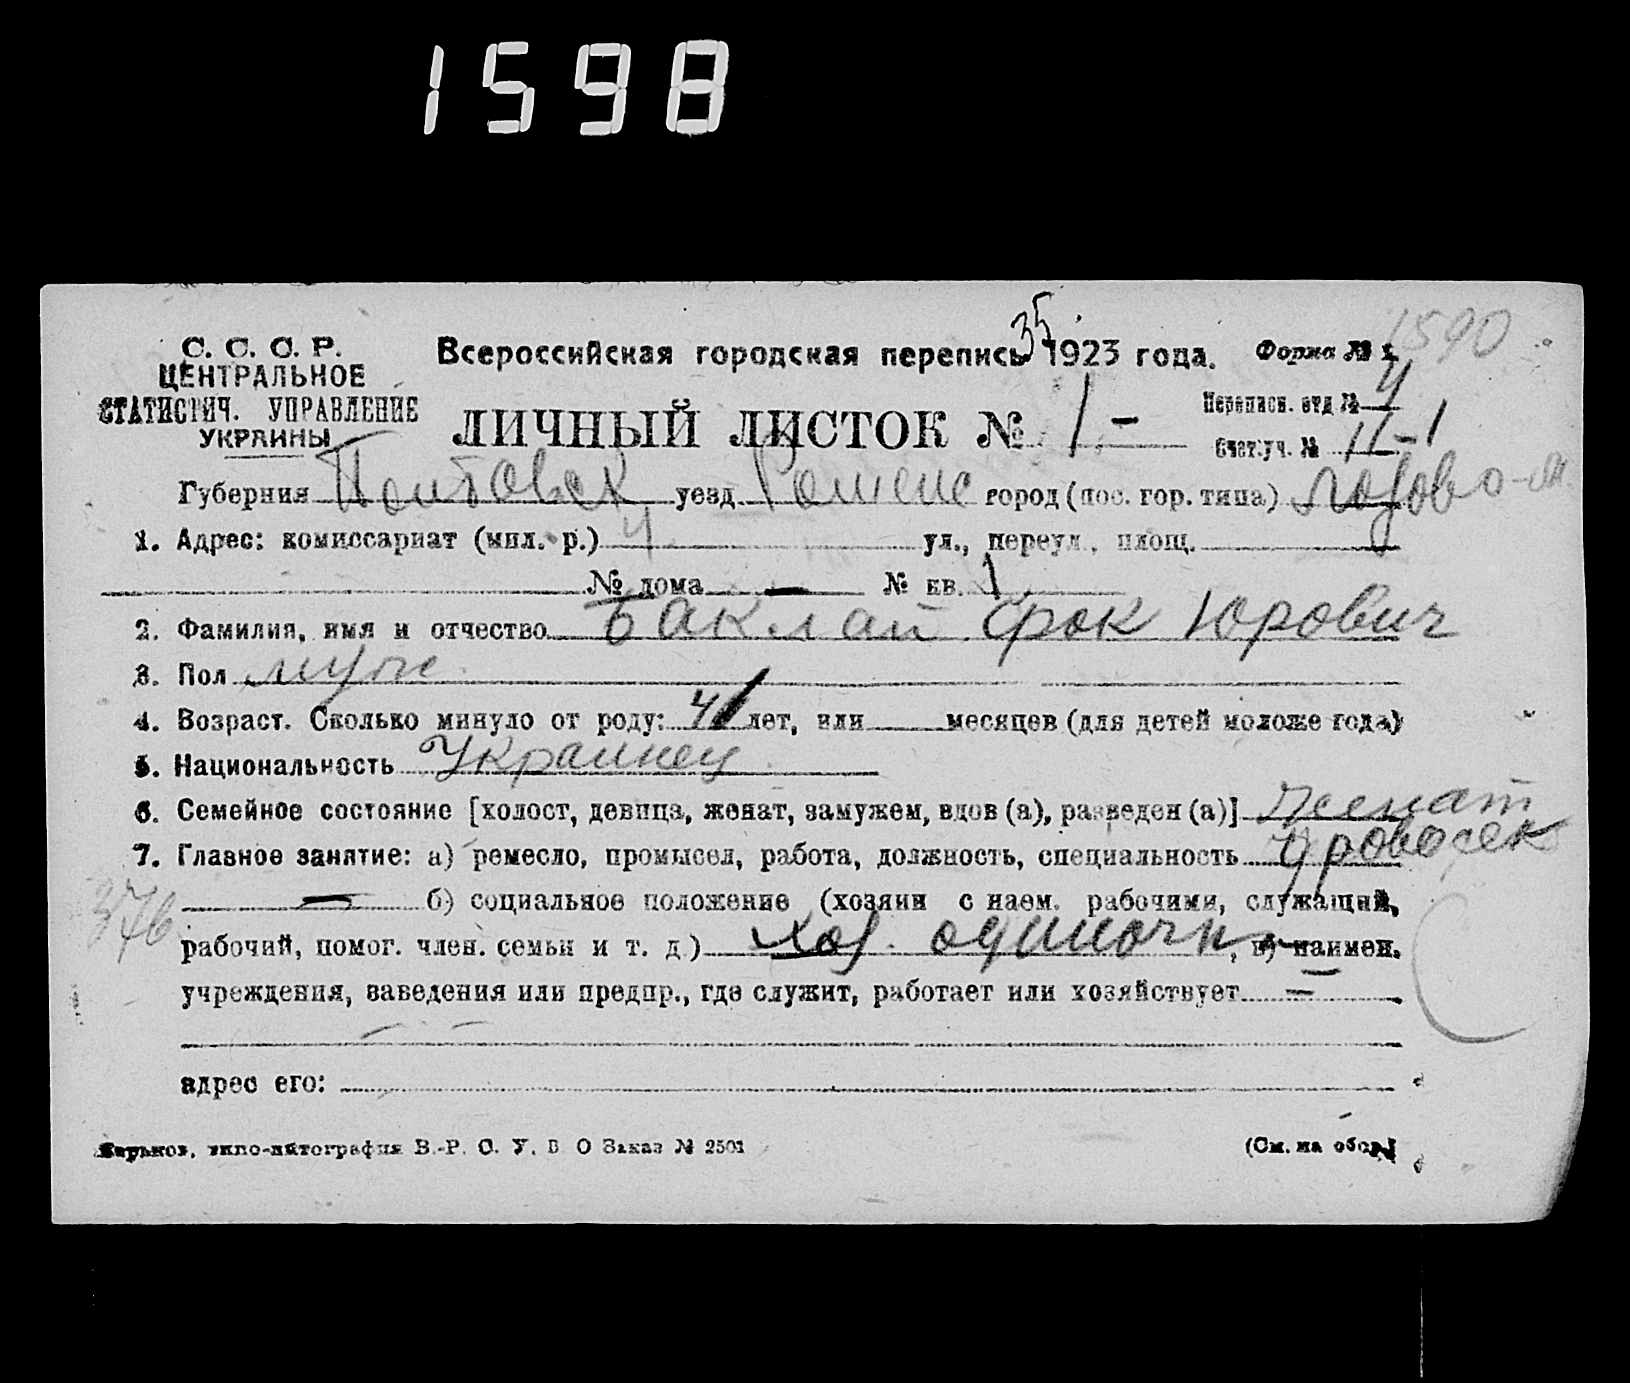 1598
35
1590
С. С. С. Р.
ЦЕНТРАЛЬНОЕ
СТАТИСТИЧ. УПРАВЛЕНИЕ
УКРАИНЫ
Всероссийская городская перепись 1923 года. Форма № 1
ЛИЧНЫЙ ЛИСТОК № 1 -
Переписн. отд №
Счет.уч. № II-1
Губерния Полтовск уезд Роменс город (пос. гор. типа)
1. Адрес: комиссариат (мил. р.) 4 ул., переул., площ.
№ дома — № кв. 1
2. Фамилия, имя и отчество Баклай Фрок Юрович
3. Пол муж
4. Возраст. Сколько минуло от роду: 41 лет, или месяцев (для детей моложе года)
5. Национальность Украинец
6. Семейное состояние [холост, девица, женат, замужем, вдов (а), разведен (а)] Женат
7. Главное занятие: а) ремесло, промысел, работа, должность, специальность Дровосек
376
— б) социальное положение (хозяин с наем. рабочими, служащий,
рабочий, помог. член. семьи и т. д.) хоз. одиночк, в) наимен.
учреждения, заведения или предпр., где служит, работает или хозяйствует —
адрес его:
Харьков, типо-литография В.-Р. С. У. В О Заказ № 2501 (См. на обор.)